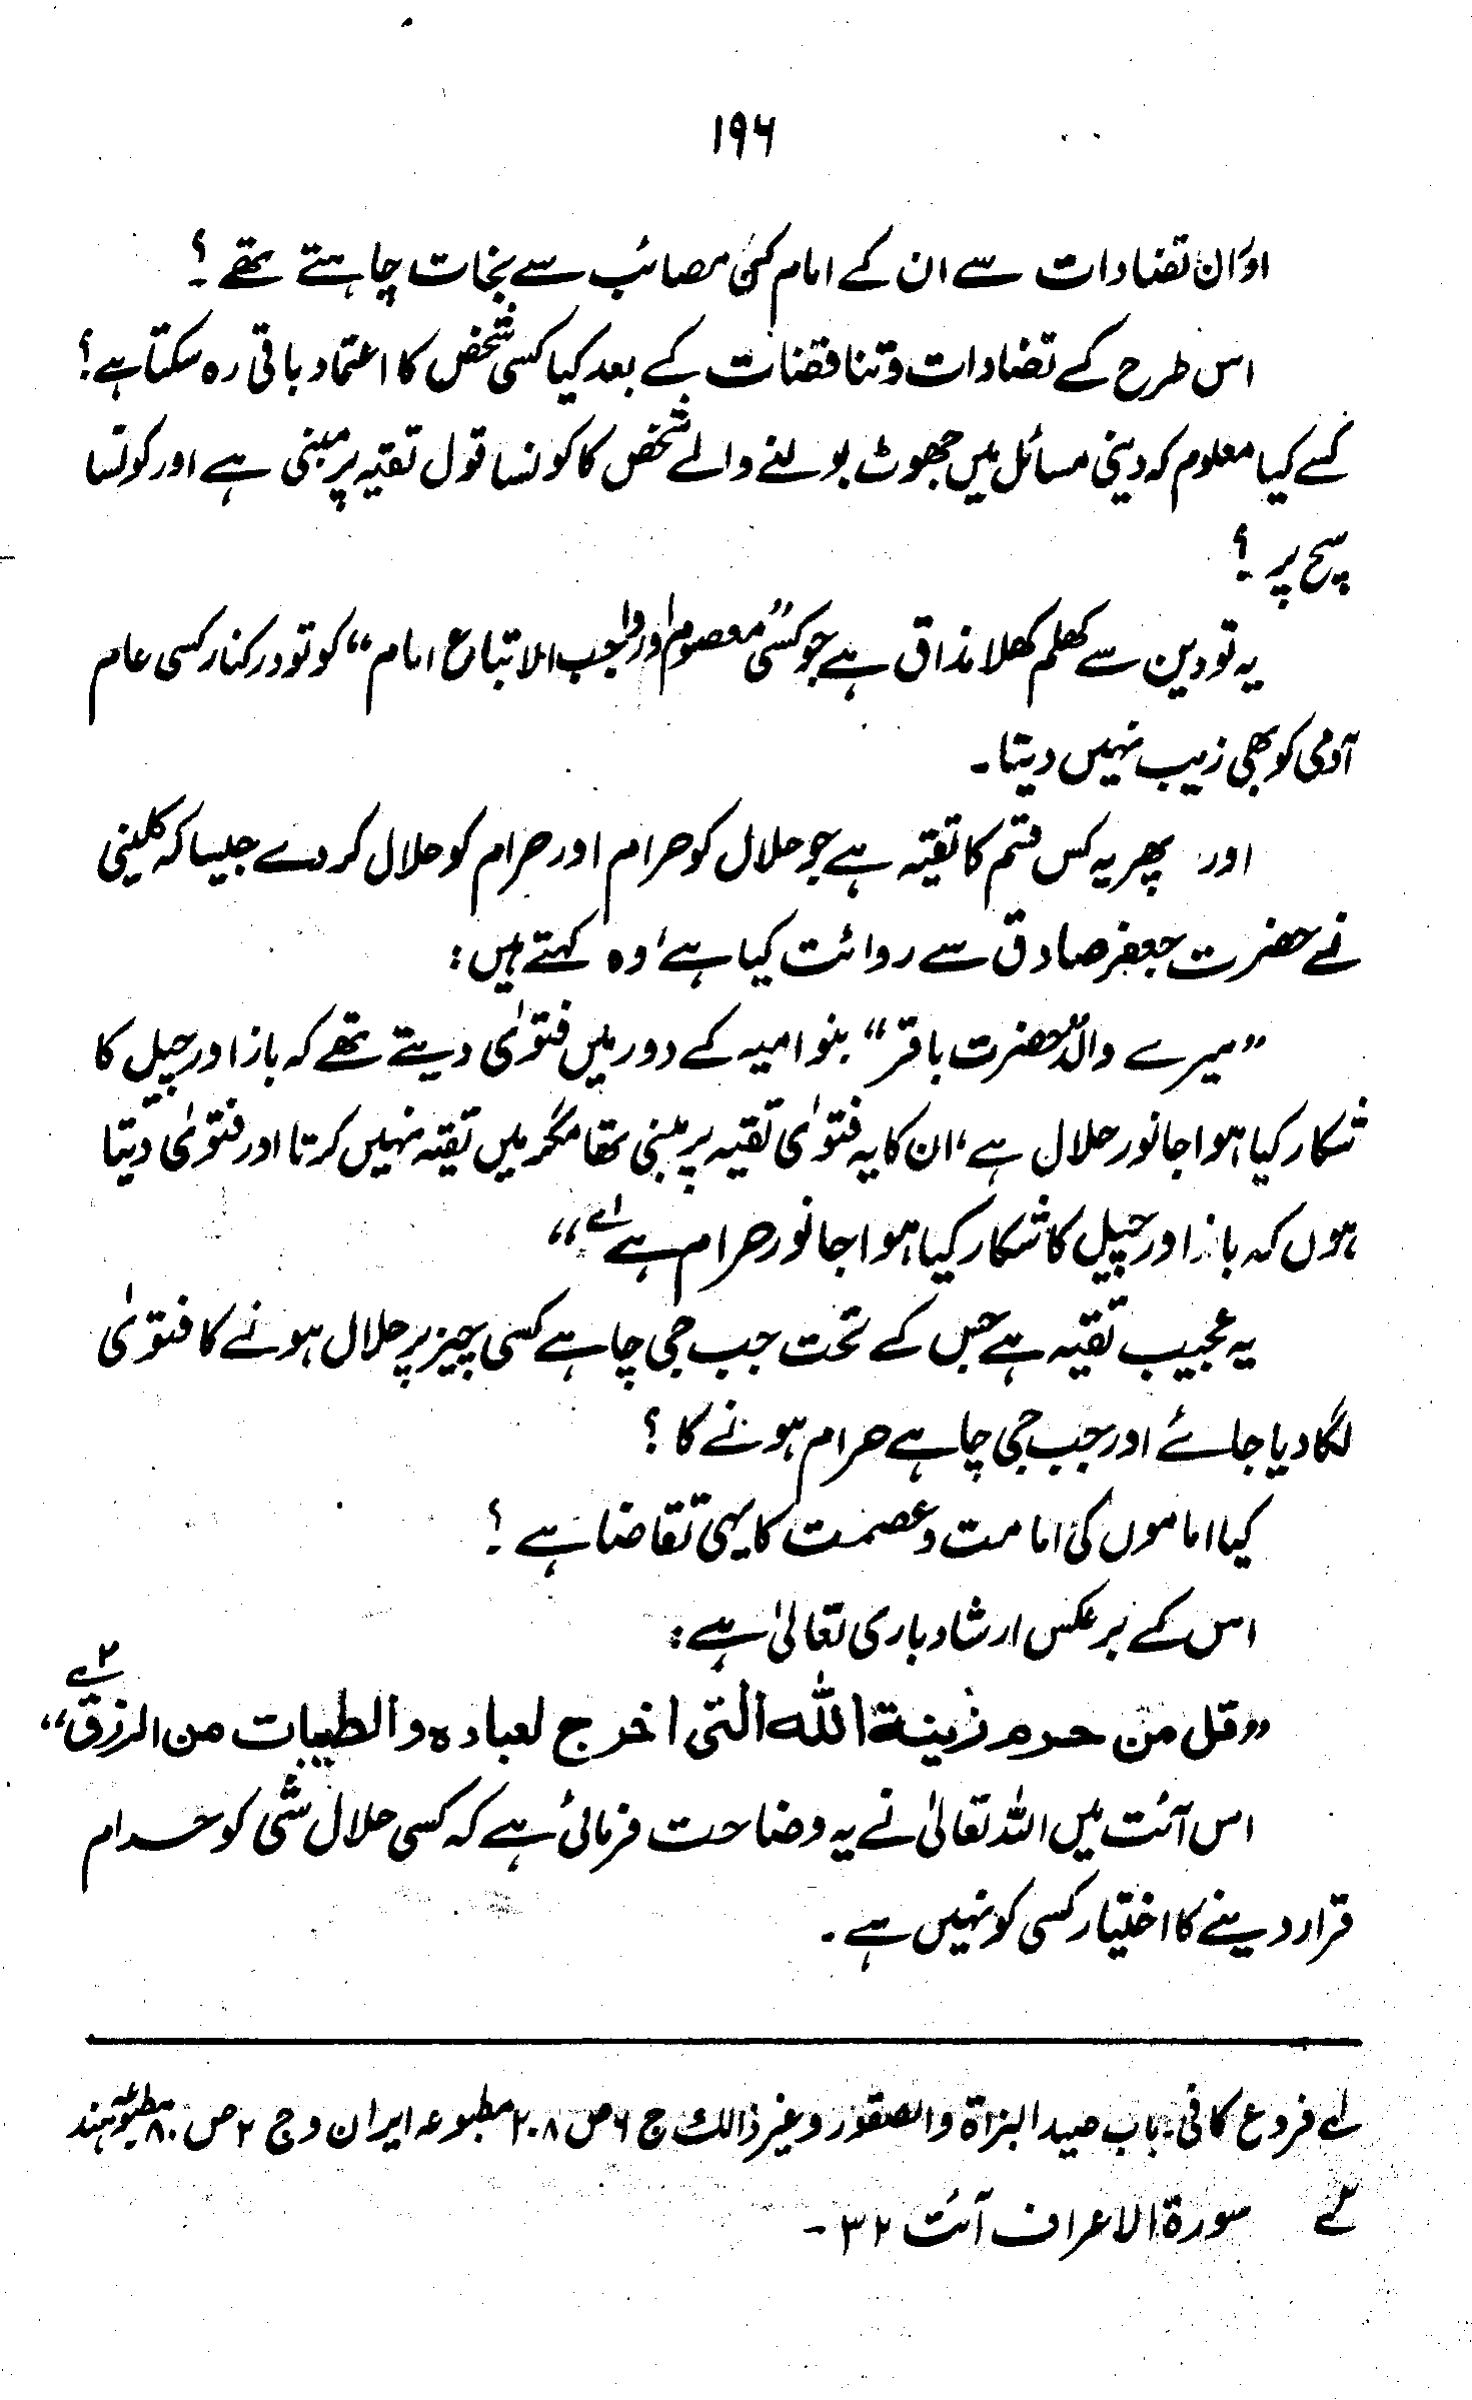 ۱۹۶
اور ان تضادات سے ان کے امام کن مصائب سے نجات چاہتے تھے ؟
اس طرح کے تضادات و تناقضات کے بعد کیا کسی شخص کا اعتماد باقی رہ سکتا ہے ؟
کسے کیا معلوم کہ دینی مسائل میں جھوٹ بولنے والے شخص کا کونسا قول تقیہ پر مبنی ہے اور کونسا
سچ پر ؟
یہ تو دین سے کھلم کھلا مذاق ہے جو کسی ”معصوم اور واجب الاتباع امام“ کو تو درکنار کسی عام
آدمی کو بھی زیب نہیں دیتا ۔
اور پھر یہ کس قسم کا تقیہ ہے جو حلال کو حرام اور حرام کو حلال کر دے جیسا کہ کلینی
نے حضرت جعفر صادق سے روائت کیا ہے، وہ کہتے ہیں :
”میرے والد ”حضرت باقر“ بنو امیہ کے دور میں فتویٰ دیتے تھے کہ باز اور چیل کا
شکار کیا ہوا جانور حلال ہے، ان کا یہ فتویٰ تقیہ پر مبنی تھا مگر میں تقیہ نہیں کرتا اور فتویٰ دیتا
ہوں کہ باز اور چیل کا شکار کیا ہوا جانور حرام ہے ۱؎“
یہ عجیب تقیہ ہے جس کے تحت جب جی چاہے کسی چیز پر حلال ہونے کا فتویٰ
لگا دیا جائے اور جب جی چاہے حرام ہونے کا ؟
کیا اماموں کی امامت و عصمت کا یہی تقاضا ہے ؟
اس کے برعکس ارشاد باری تعالیٰ ہے :
”قل من حرم زینة الله التی اخرج لعباده والطیبات من الرزق“ ۲؎
اس آئت میں اللہ تعالیٰ نے یہ وضاحت فرمائی ہے کہ کسی حلال شی کو حرام
قرار دینے کا اختیار کسی کو نہیں ہے ۔
۱؎ فروع کافی ۔ باب صید البزاة والصقور وغیر ذالك ج ۶ ص ۲۰۸ مطبوعہ ایران و ج ۲ ص ۸۰ مطبوعہ ہند
۲؎ سورة الاعراف آئت ۳۲ -